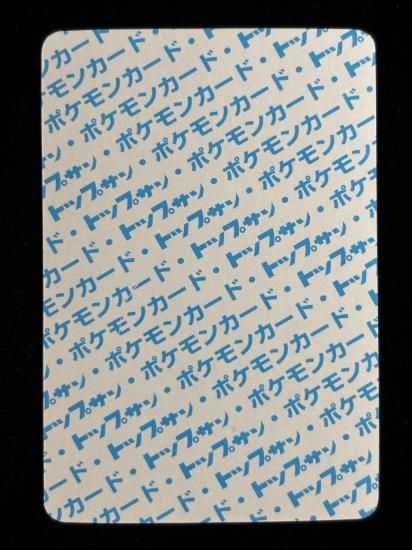 ンカード・
ケモンカード・トップサン
・ポケモンカード・トップサン・
トップサン・ポケモンカード・
・トップサン・ポケモンカード
ド・トップサン・ポケモンカード
カード・トップサン・ポケモン
モンカード・トップサン・ポケ
ポケモンカード・トップサン・ポ
・ポケモンカード・トップサン・
サン・ポケモンカード・トップサン
トップサン・ポケモンカード・
・トップサン・ポケモンカード
ード・トップサン・ポケモン
ンカード・トップサン・ポ
・トップサン